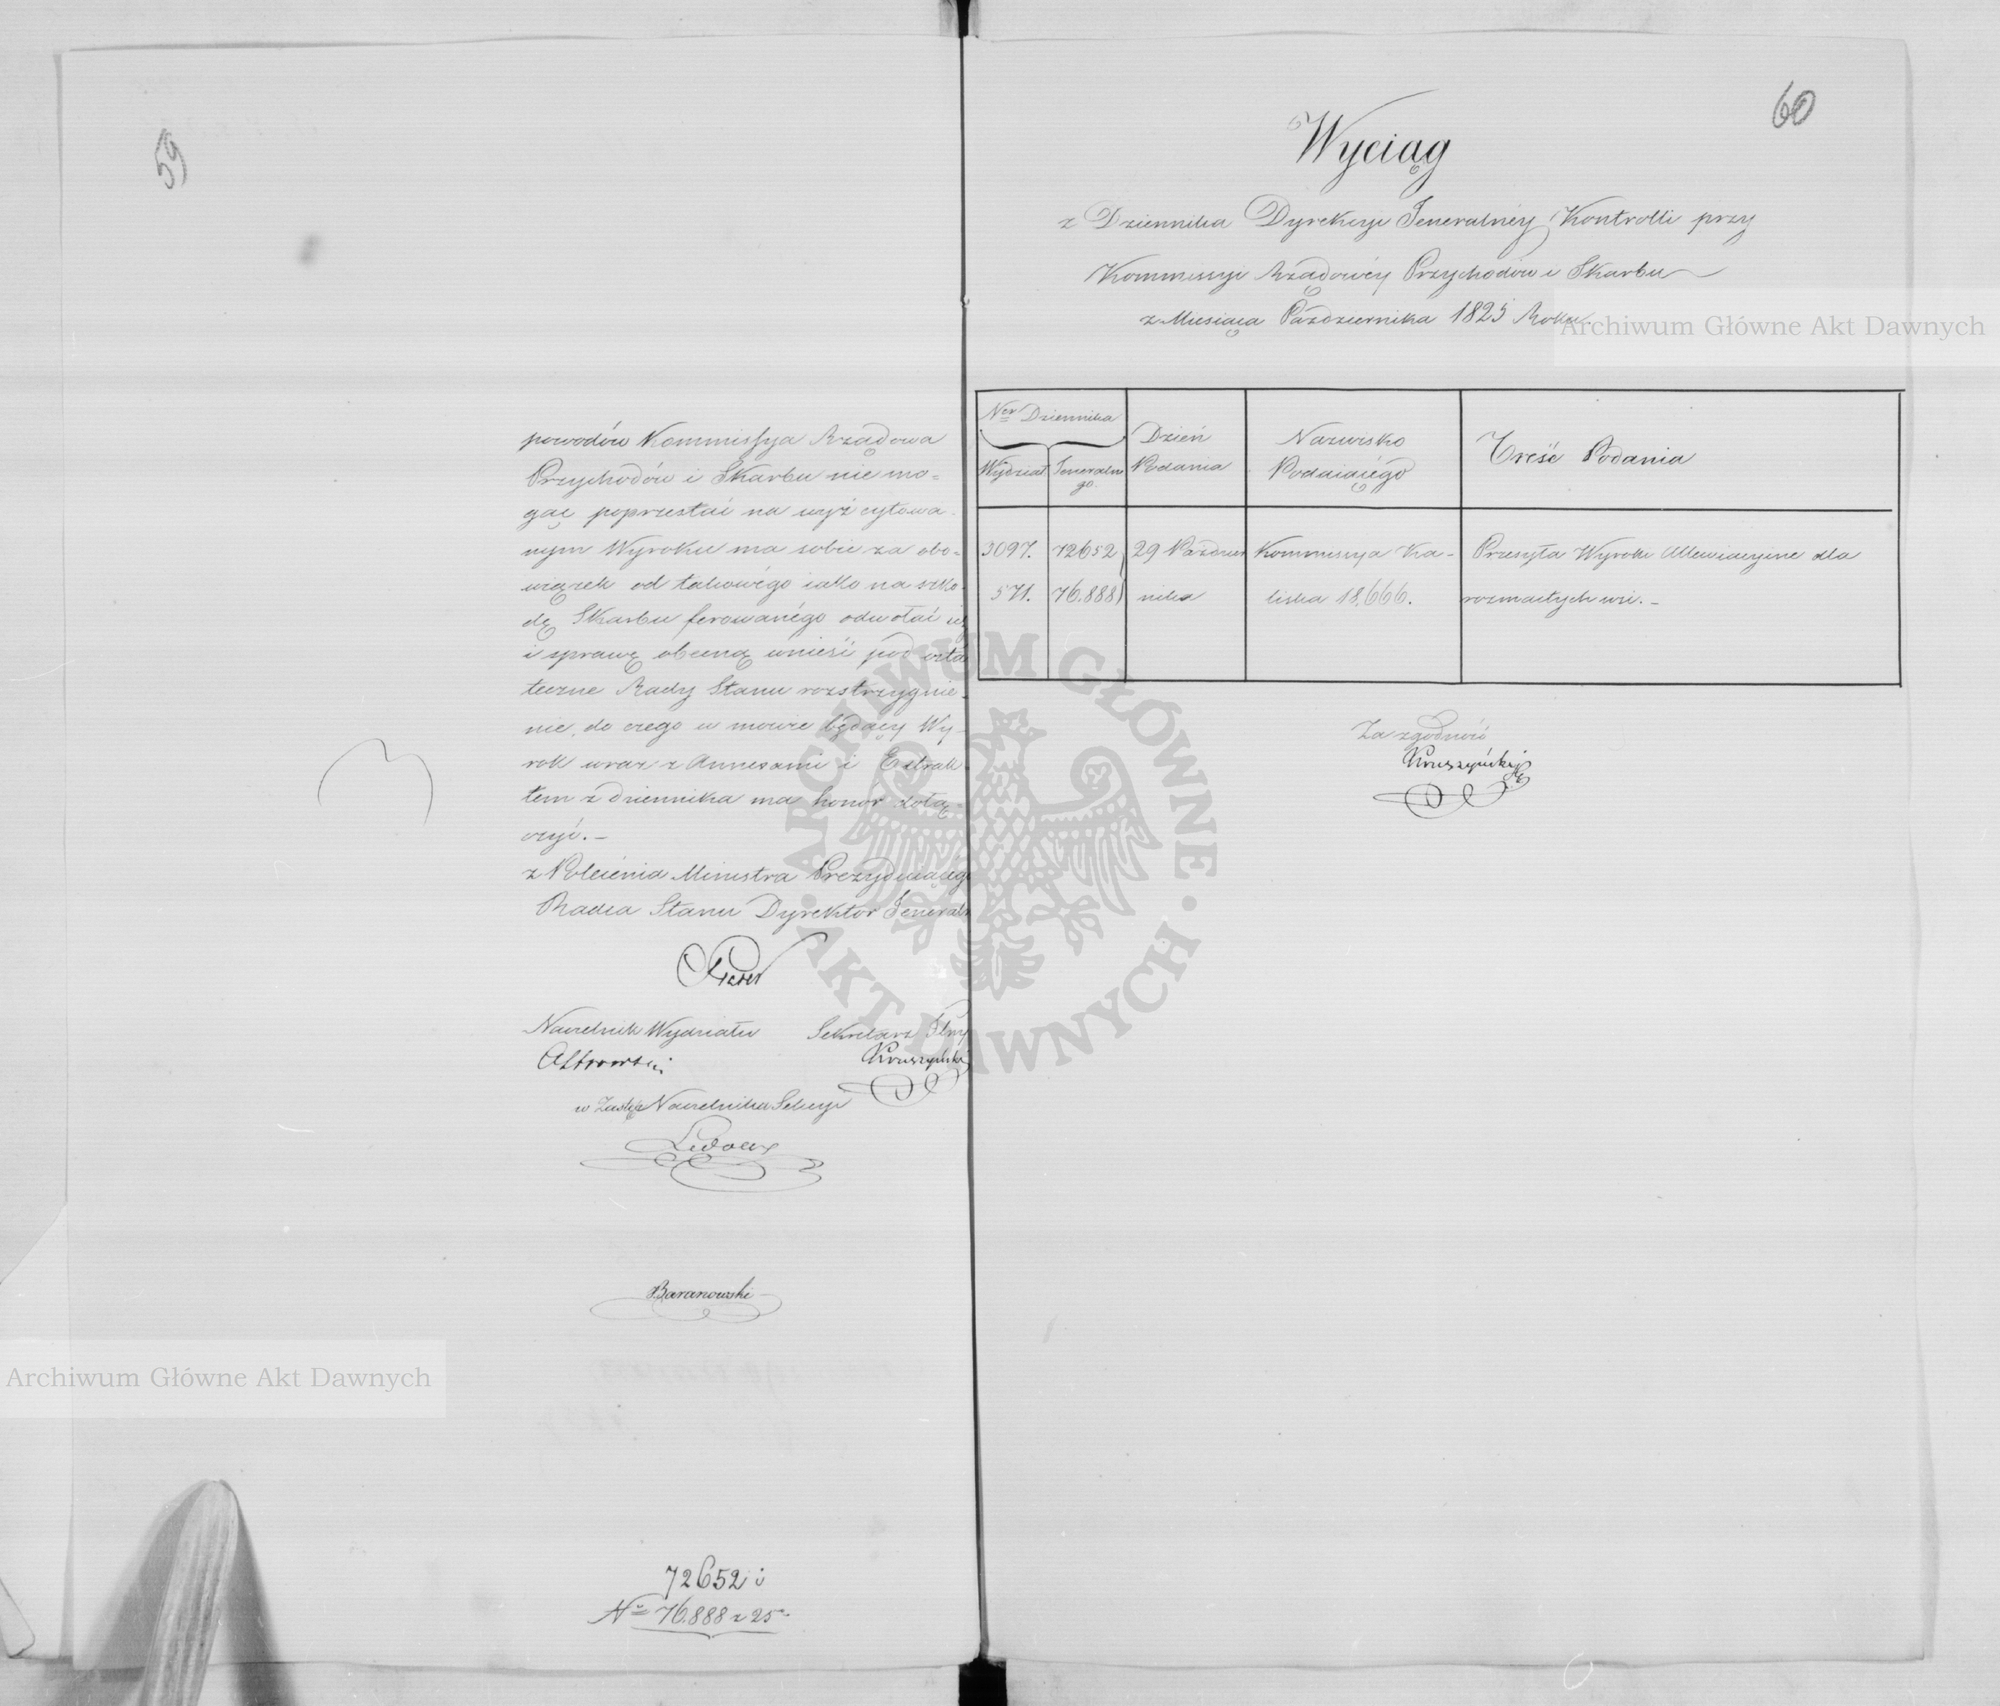 59
powodów Kommissya Rządowa
Przychodów i Skarbu nie mo=
gąc poprzestać na wyż cytowa=
nym Wyroku ma sobie za obo=
wiązek od takowégo iako na szko=
dę Skarbu ferowanégo odwołać się
i sprawę obecną wnieść pod osta
teczne Rady Stanu rozstrzygnie=
nie, do czego w mowie będący Wy=
rok wraz z Annexami i Extrak
tem z Dziennika ma honor dołą=
czyć.–
z Polecénia Ministra Prezyduiącégo
Radca Stanu Dyrektor Jeneralny
Naczelnik Wydziału Sekretarz Jlny
Kruszyński
w Zastęp Naczelnika Sekcyi
Ledoux
Baranowski
72652 i
No 76.888 z 25
60
Wyciąg
z Dziennika Dyrekcyi Jeneralnéy Kontrolli przy
Kommissyi Rządowéy Przychodów i Skarbu
z Miesiąca Października 1825 Roku
Ner Dziennika
Wydział Jeneralne
go.
Dzień
Podania
Nazwisko
Podaiącégo
Treść Podania
3097. 72652 29 Paździer Kommissya Ka- Przesyła Wyroki Allewiacyine dla
571. 76.888 nika liska 18,666. rozmaitych wsi.–
Za zgodność
Kruszyński
Archiwum Główne Akt Dawnych
Archiwum Główne Akt Dawnych
ARCHIWUM GŁÓWNE · AKT DAWNYCH ·